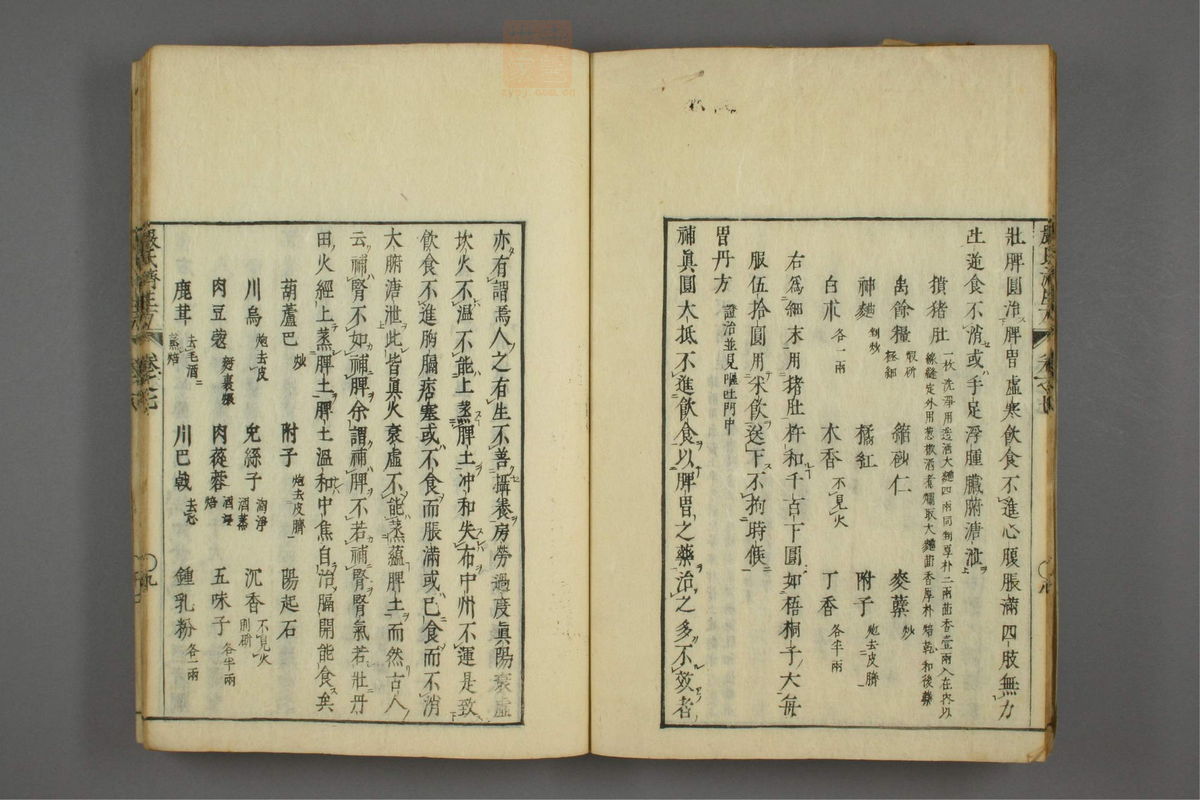 壯脾圓治脾胃虛寒飲食不進心腹脹滿四肢無力
吐逆食不消或手足浮腫臟腑溏泄
豶猪肚 一枚洗淨用造酒大麯四兩同剉厚朴二兩茴香壹兩入在內以
線縫定外用葱椒酒煮爛取大麯茴香厚朴焙乾和後藥
禹餘糧 煆研極細 縮砂仁 麥蘖 炒
神麯 剉炒 橘紅 附子 炮去皮臍
白朮 各一兩 木香 不見火 丁香 各半兩
右爲細末用猪肚杵和千百下圓如梧桐子大每
服伍拾圓用米飲送下不拘時候
胃丹方 證治並見嘔吐門中
補眞圓大抵不進飲食以脾胃之藥治之多不效者
亦有謂焉人之有生不善攝養房勞過度眞陽衰虛
坎火不溫不能上蒸脾土冲和失布中州不運是致
飲食不進胸膈痞塞或不食而脹滿或已食而不消
大腑溏泄此皆眞火衰虛不能蒸蘊脾土而然古人
云補腎不如補脾余謂補脾不若補腎腎氣若壯丹
田火經上蒸脾土脾土溫和中焦自治膈開能食矣
葫蘆巴 炒 附子 炮去皮臍 陽起石
川烏 炮去皮 兔絲子 淘淨酒蒸 沉香 不見火別研
肉豆蔻 麵裹煨 肉蓯蓉 酒浸焙 五味子 各半兩
鹿茸 去毛酒蒸焙 川巴戟 去心 鍾乳粉 各一兩
嚴氏濟生方 卷之七